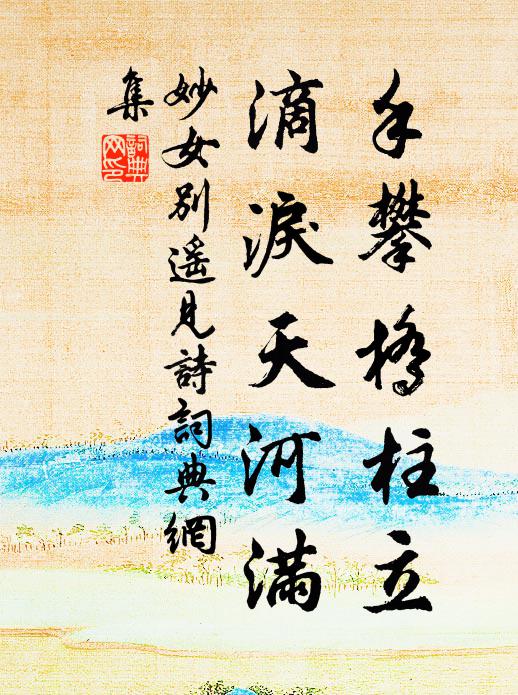 手攀橋柱立
滴淚天河滿
妙女別遥見詩詞典網
集
詞典
网印